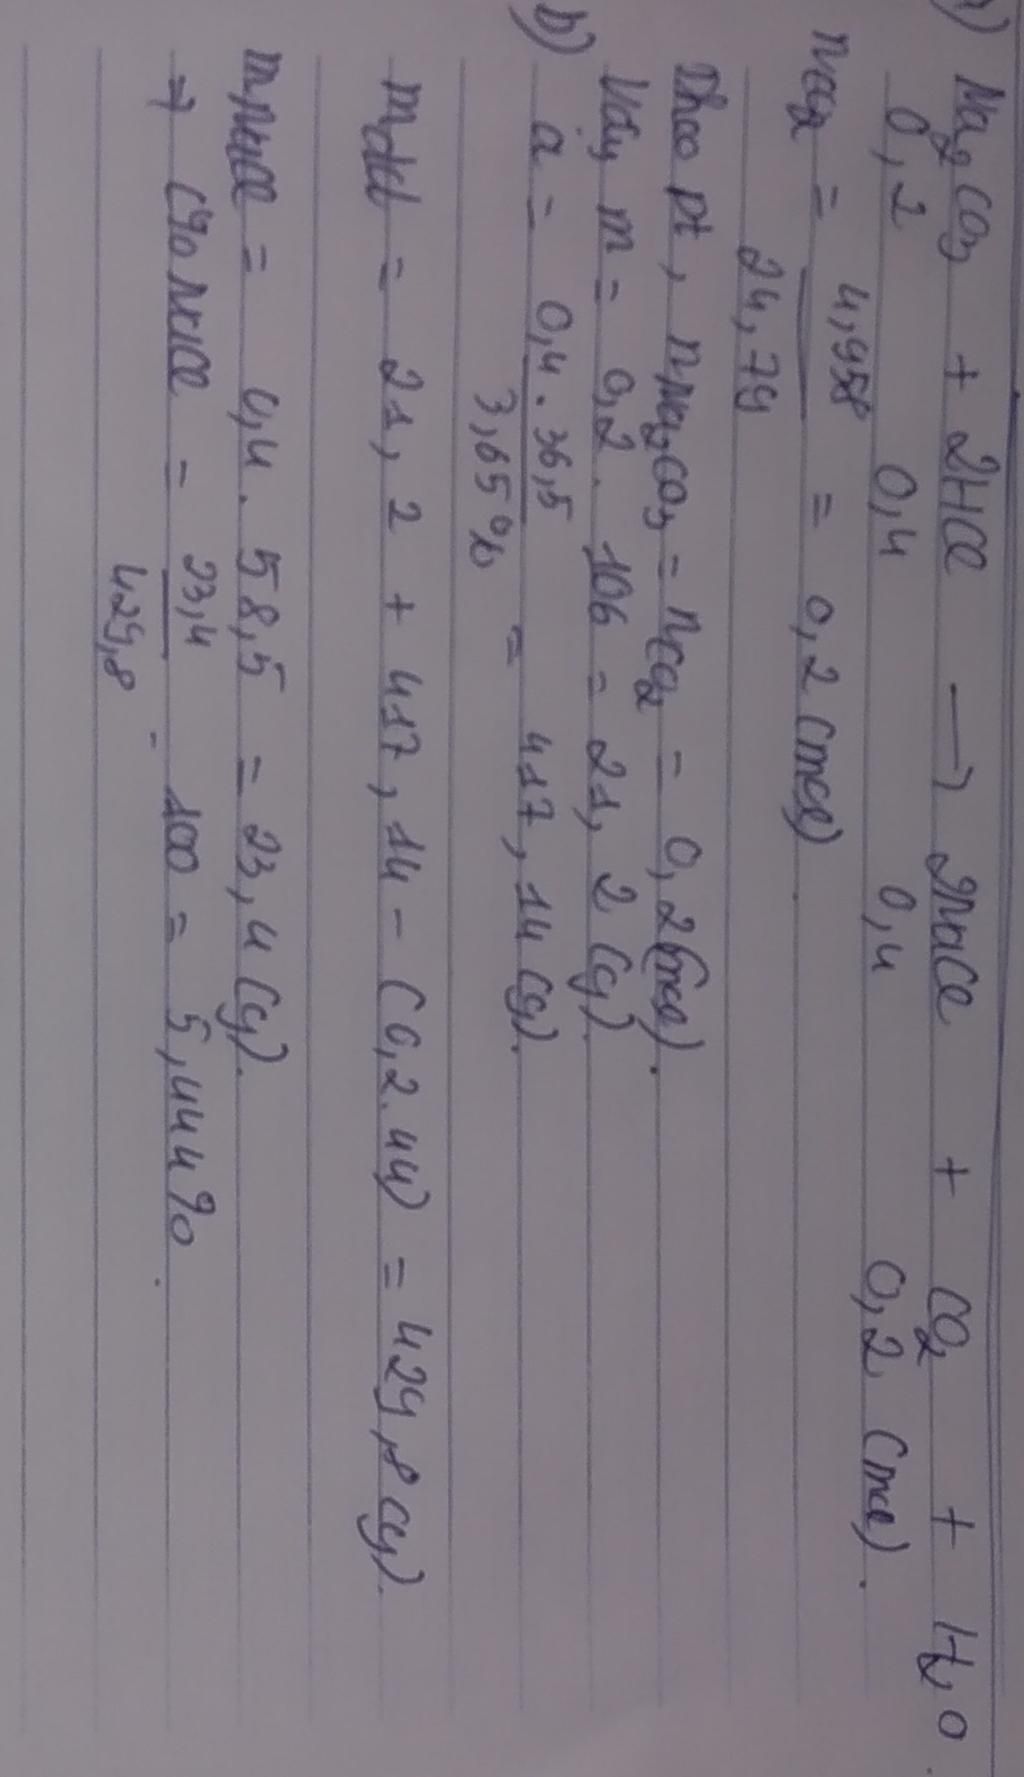 a) Na2CO3 + 2HCl → 2NaCl + CO2 + H2O
0,2 0,4 0,4 0,2 (mol).
nCO2 = 4,958 / 24,79 = 0,2 (mol).
Theo pt, nNa2CO3 = nCO2 = 0,2 (mol).
Vậy m = 0,2 . 106 = 21,2 (g).
b) a = 0,4 . 36,5 / 3,65% = 417,14 (g).
mdd = 21,2 + 417,14 - (0,2.44) = 429,8 (g).
mNaCl = 0,4 . 58,5 = 23,4 (g).
⇒ C% NaCl = 23,4 / 429,8 . 100 = 5,44%.